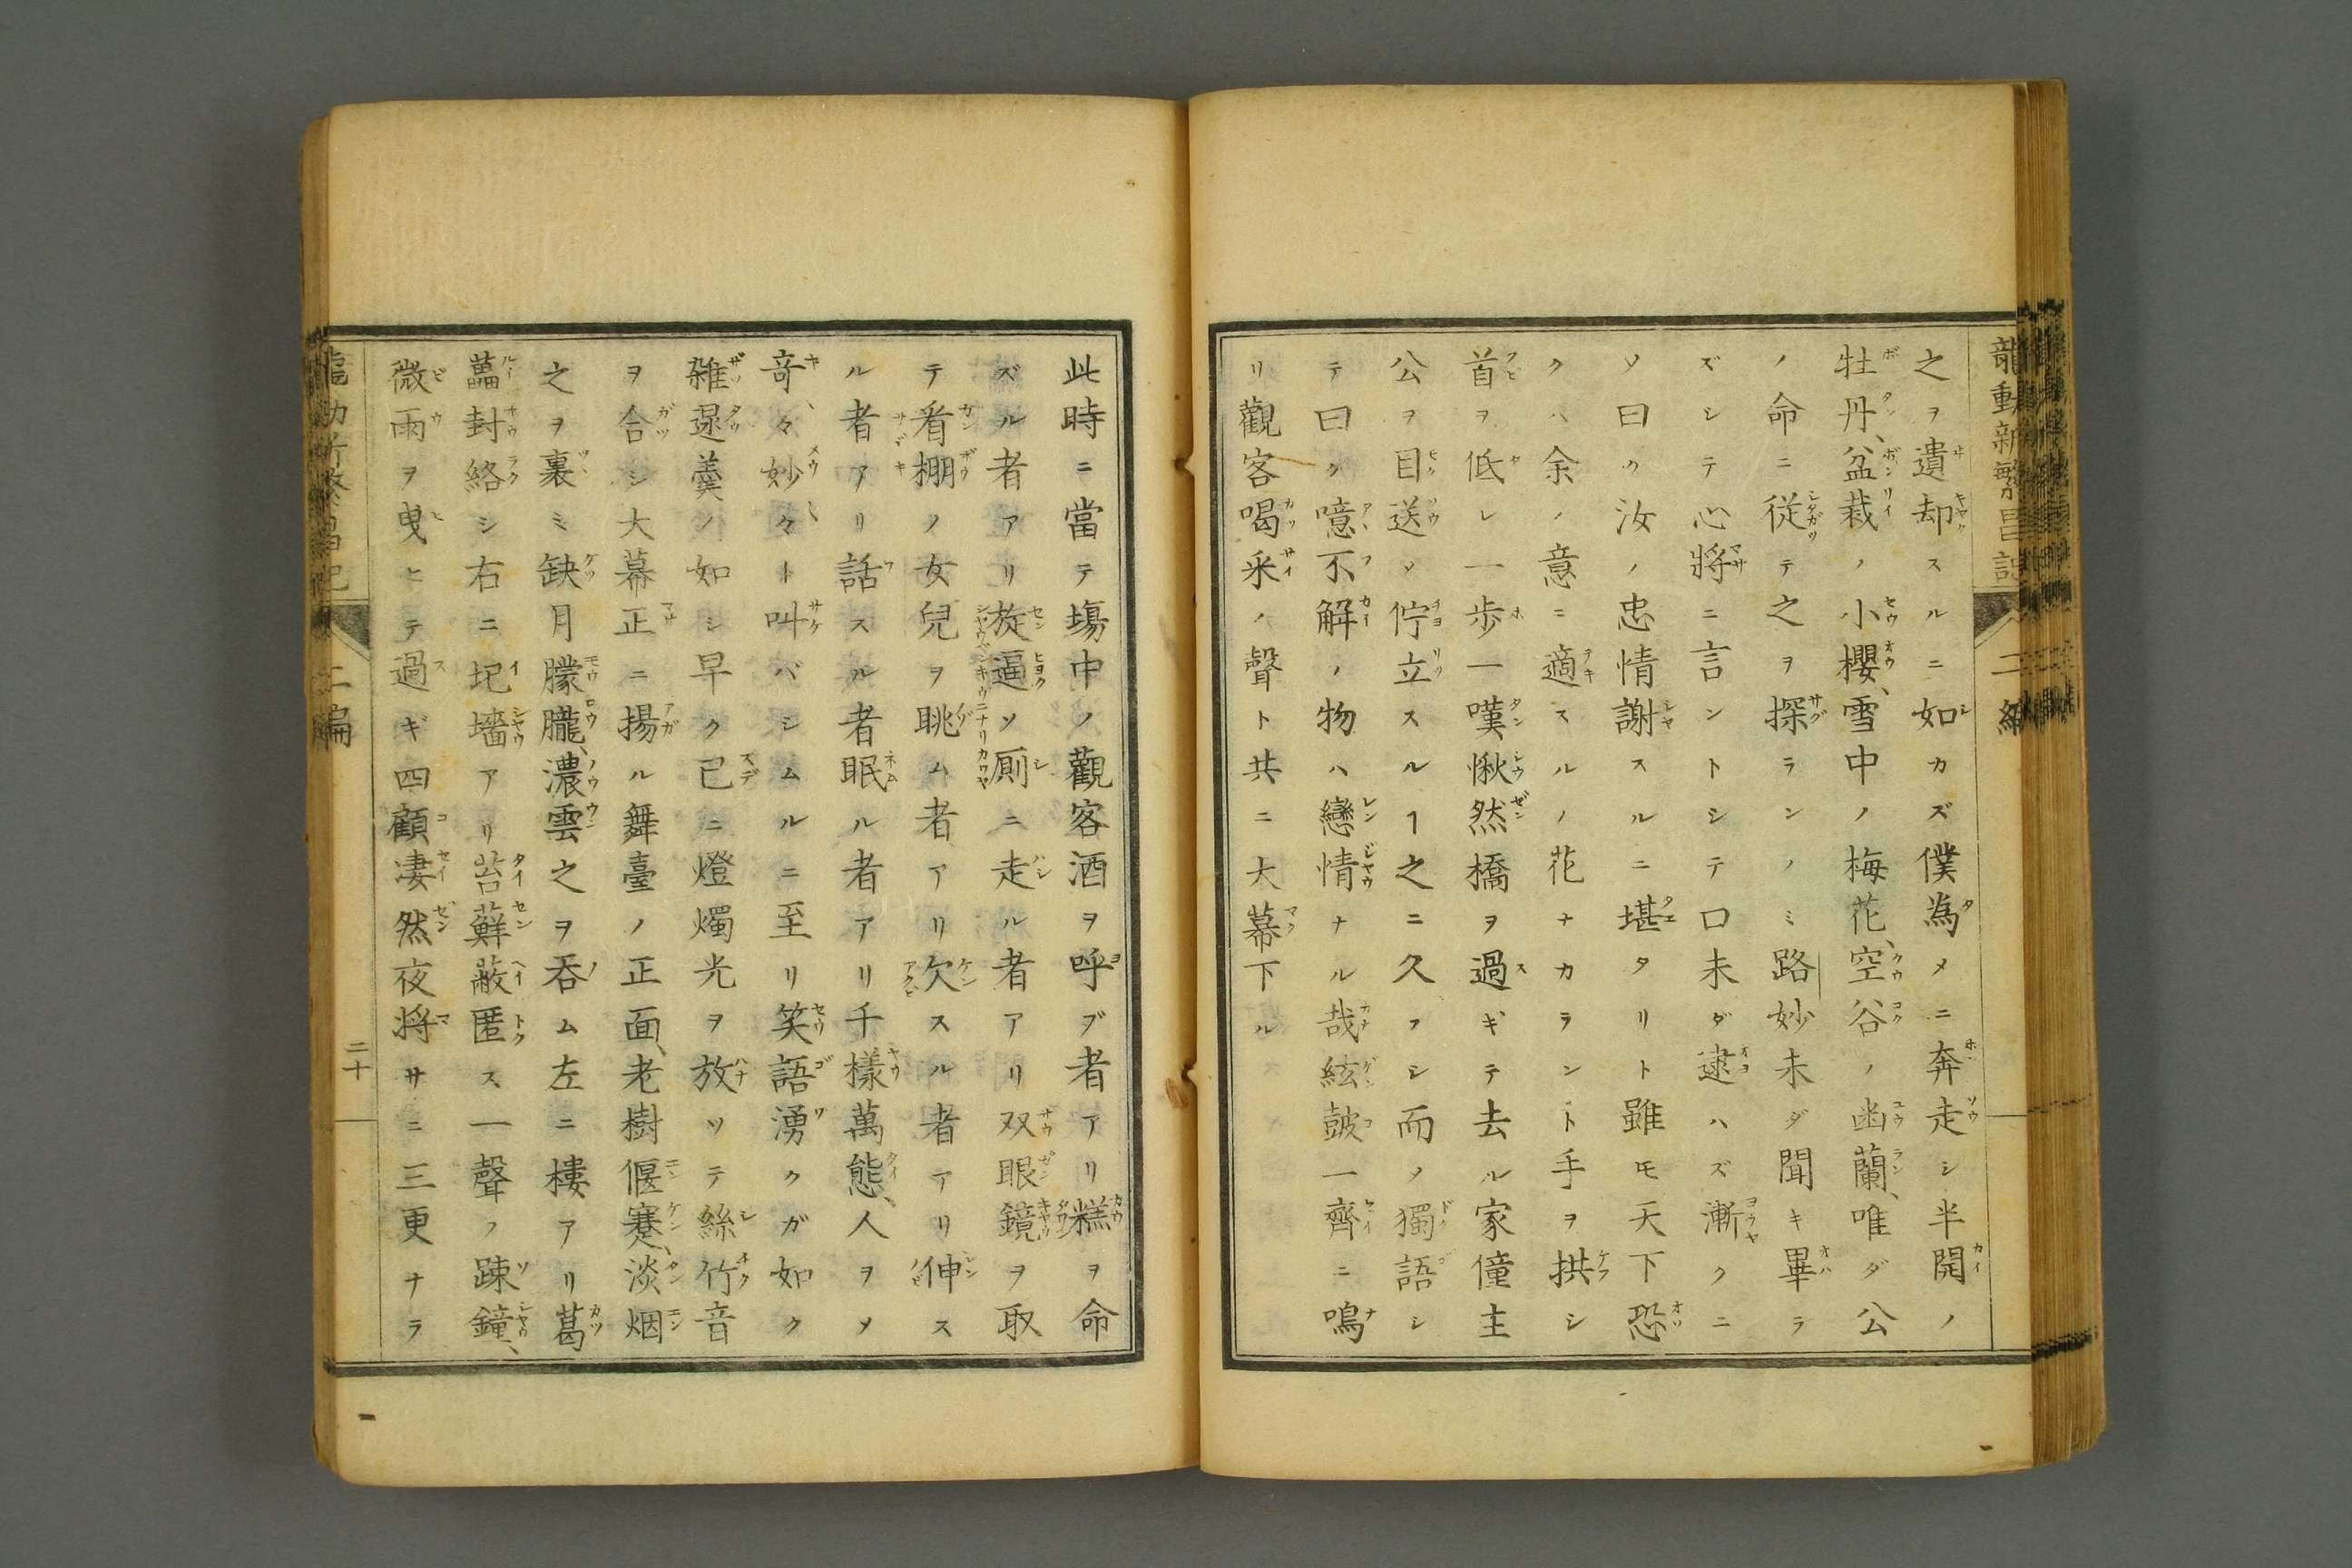 龍動新繁昌記 二編
之ヲ遺却スルニ如カズ僕爲メニ奔走シ半開ノ
牡丹、盆栽ノ小櫻、雪中ノ梅花、空谷ノ幽蘭、唯ダ公
ノ命ニ従テ之ヲ探ランノミ路妙未ダ聞キ畢ラ
ズシテ心將ニ言ントシテ口未ダ逮ハズ漸クニ
ソ曰ク汝ノ忠情謝スルニ堪タリト雖モ天下恐
クハ余ノ意ニ適スルノ花ナカラント手ヲ拱シ
首ヲ低レ一歩一嘆、愀然橋ヲ過ギテ去ル家僮主
公ヲ目送ソ佇立スルヿ之ニ久フシ而ノ獨語シ
テ曰ク噫不解ノ物ハ戀情ナル哉絃皷一齊ニ鳴
リ觀客喝采ノ聲ト共ニ大幕下ル
此時ニ當テ塲中ノ觀客酒ヲ呼ブ者アリ糕ヲ命
ズル者アリ旋逼ソ厠ニ走ル者アリ双眼鏡ヲ取
テ看棚ノ女兒ヲ眺ム者アリ欠スル者アリ伸ス
ル者アリ話スル者眠ル者アリ千樣萬態、人ヲメ
奇々妙々ト叫バシムルニ至リ笑語湧クガ如ク
雜遝羹ノ如シ早ク已ニ燈燭光ヲ放ツテ絲竹音
ヲ合シ大幕正ニ揚ル舞臺ノ正面、老樹偃蹇、淡烟
之ヲ裏ミ缺月朦朧、濃雲之ヲ呑ム左ニ樓アリ葛
藟封絡シ右ニ圯墻アリ苔蘚蔽匿ス一聲ノ踈鐘、
微雨ヲ曳ヒテ過ギ四顧凄然夜将サニ三更ナラ
龍動新繁昌記 二編 二十